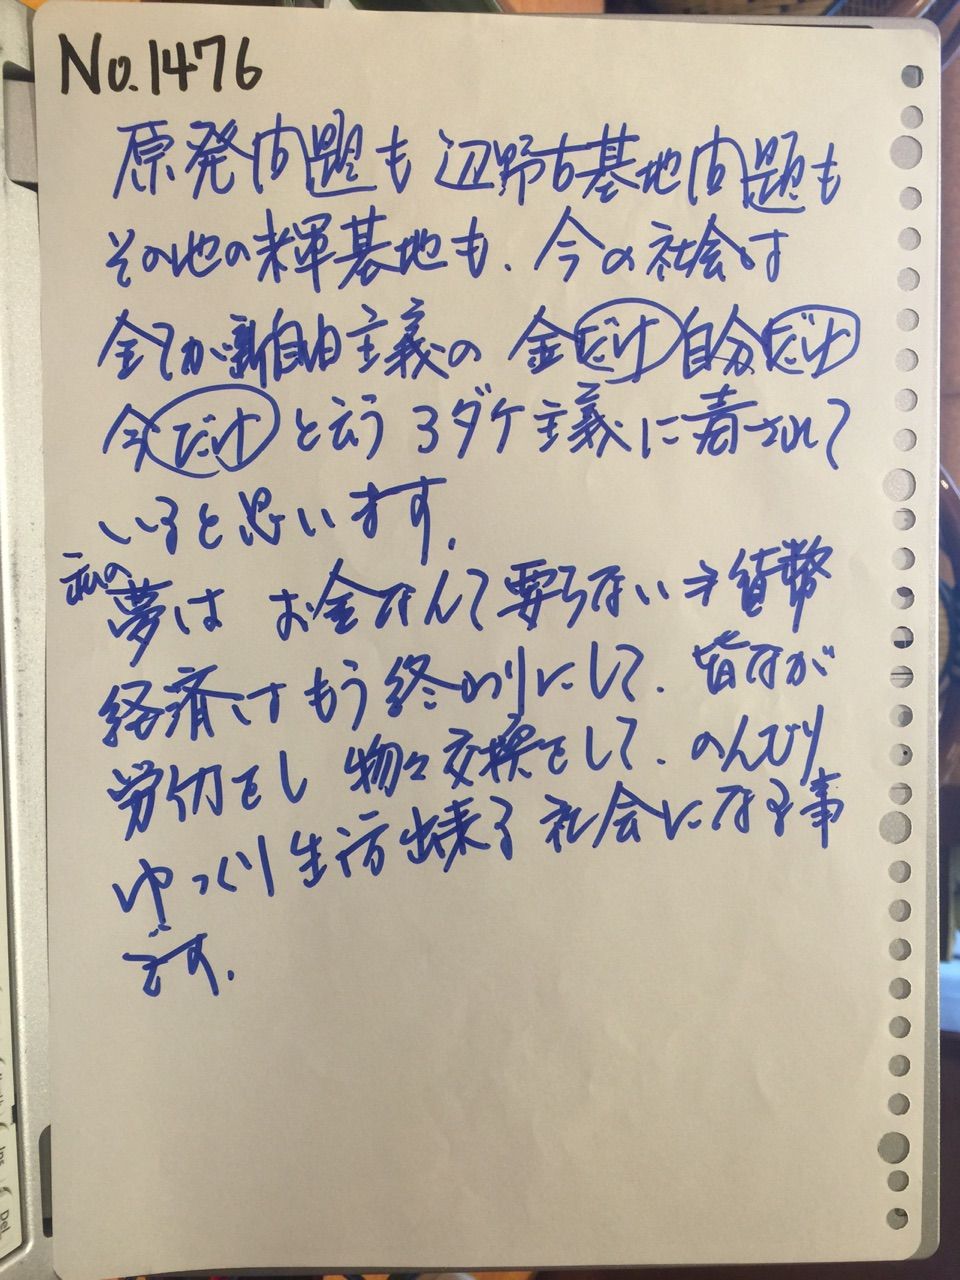 No.1476
原発問題も辺野古基地問題も
その他の米軍基地も、今の社会は
全てが新自由主義の金だけ自分だけ
今だけと云う3ダケ主義に毒されて
いると思います。
私の
夢は お金なんて要らない⇒貨幣
経済はもう終わりにして、皆なが
労働をし 物々交換をして、のんびり
ゆっくり生活出来る社会になる事
です。